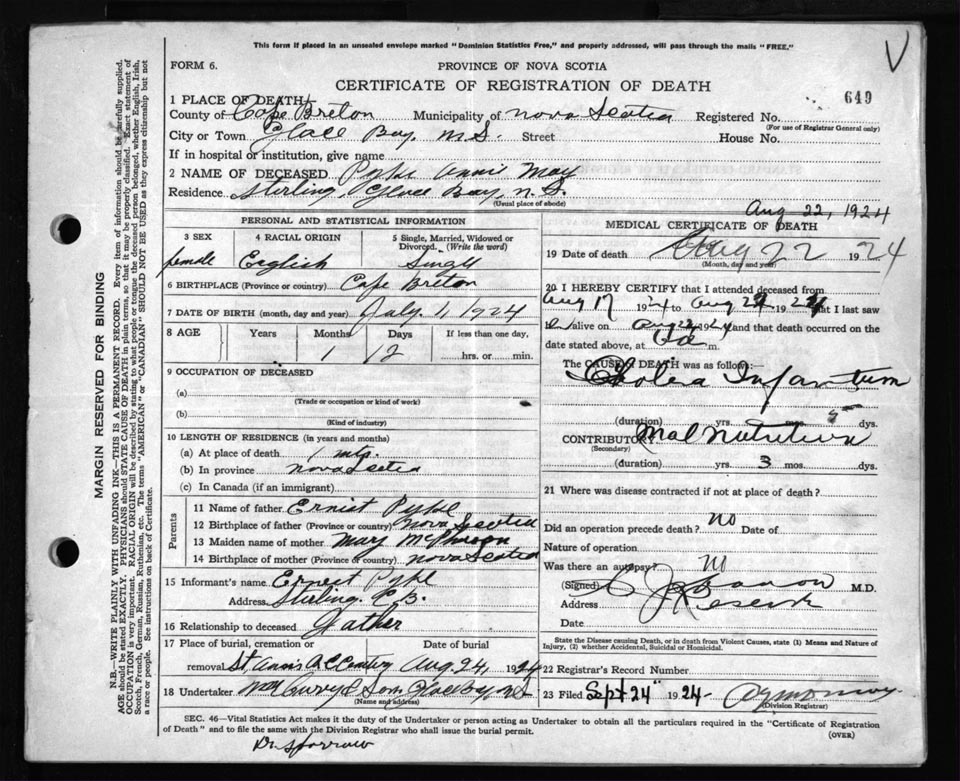 This form if placed in an unsealed envelope marked "Dominion Statistics Free," and properly addressed, will pass through the mails "FREE."
V
FORM 6.
PROVINCE OF NOVA SCOTIA
CERTIFICATE OF REGISTRATION OF DEATH
649
1 PLACE OF DEATH
County of Cape Breton Municipality of Nova Scotia Registered No.
(For use of Registrar General only)
City or Town Glace Bay, N.S. Street House No.
If in hospital or institution, give name
2 NAME OF DECEASED Pyke Annie May
Residence Sterling, Glace Bay, N.S.
(Usual place of abode)
Aug 22, 1924
PERSONAL AND STATISTICAL INFORMATION
3 SEX female
4 RACIAL ORIGIN English
5 Single, Married, Widowed or Divorced. (Write the word) Single
6 BIRTHPLACE (Province or country) Cape Breton
7 DATE OF BIRTH (month, day and year) July 1, 1924
8 AGE Years Months Days If less than one day,
1 12 hrs. or min.
9 OCCUPATION OF DECEASED
(a)
(Trade or occupation or kind of work)
(b)
(Kind of industry)
10 LENGTH OF RESIDENCE (in years and months)
(a) At place of death 1 mts.
(b) In province Nova Scotia
(c) In Canada (if an immigrant)
Parents
11 Name of father Ernist Pyke
12 Birthplace of father (Province or country) Nova Scotia
13 Maiden name of mother Mary
14 Birthplace of mother (Province or country) Nova Scotia
15 Informant's name Ernest Pyke
Address Sterling. C.B.
16 Relationship to deceased Father
17 Place of burial, cremation or Date of burial
removal St. Anns R C Aug. 24, 1924
18 Undertaker Son Glace Bay NS
(Name and address)
MEDICAL CERTIFICATE OF DEATH
19 Date of death Aug 22 1924
(Month, day and year)
20 I HEREBY CERTIFY that I attended deceased from
Aug 17 1924 to Aug 1924 that I last saw
alive on Aug 1924 and that death occurred on the
date stated above, at m.
The CAUSE OF DEATH was as follow:
Cholea Infantum
(duration) yrs. mos. 5 dys.
CONTRIBUTORY Mal Nutrition
(Secondary)
(duration) yrs. 3 mos. dys.
21 Where was disease contracted if not at place of death?
Did an operation precede death? No Date of
Nature of operation
Was there an autopsy? No
(Signed) M.D.
Address Reserve
Date
State the Disease causing Death, or in death from Violent Causes, state (1) Means and Nature of Injury, (2) whether Accidental, Suicidal or Homicidal.
22 Registrar's Record Number
23 Filed Sept 24 1924
(Division Registrar)
SEC. 46—Vital Statistics Act makes it the duty of the Undertaker or person acting as Undertaker to obtain all the particulars required in the "Certificate of Registration
of Death" and to file the same with the Division Registrar who shall issue the burial permit.
(OVER)
Dr. Sparrow
MARGIN RESERVED FOR BINDING
N.B.—WRITE PLAINLY WITH UNFADING INK—THIS IS A PERMANENT RECORD. Every item of information should be carefully supplied.
AGE should be stated EXACTLY. PHYSICIANS should STATE CAUSE OF DEATH in plain terms, so that it may be properly classified. Exact statement of
OCCUPATION is very important. RACIAL ORIGIN will be described by stating to what people or tongue the deceased person belonged, whether English, Irish,
Scotch, French, German, Russian, Ruthenian, etc. The terms "AMERICAN" or "CANADIAN" SHOULD NOT BE USED as they express citizenship but not
a race or people. See instructions on back of Certificate.